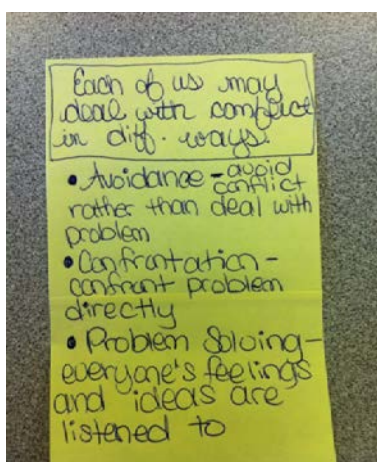 Each of us may
deal with conflict
in diff. ways.
• Avoidance - avoid
conflict
rather than deal with
problem
• Confrontation -
confront problem
directly
• Problem Solving -
everyone's feelings
and ideas are
listened to